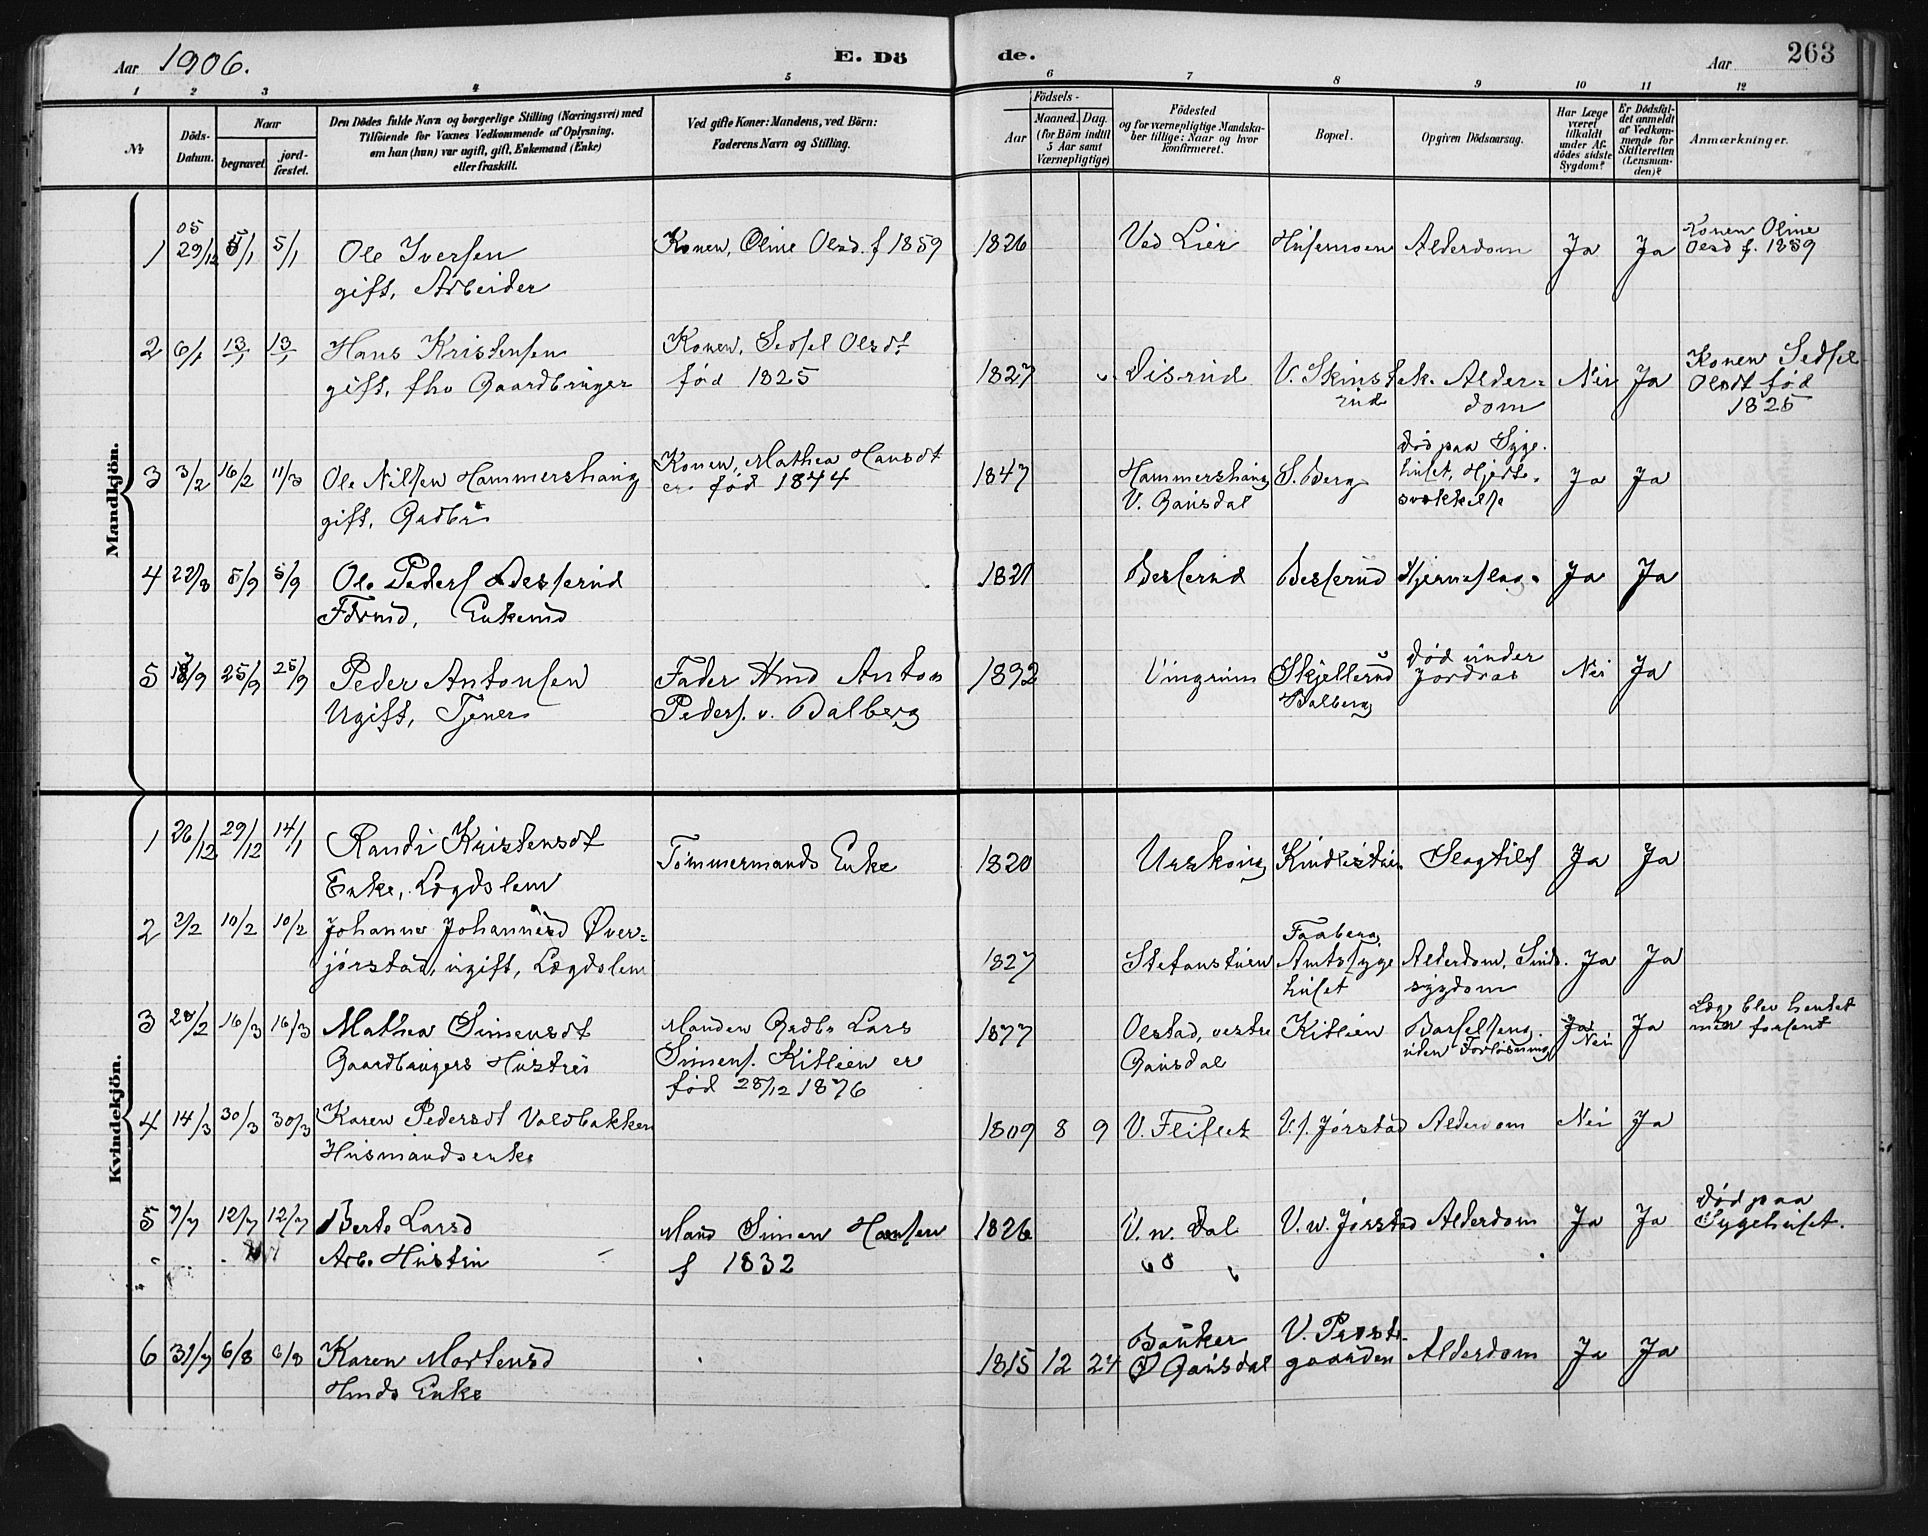 Aar 1906.
E. Dö
de.
Aar
263
1 2 3 4 5 6 7 8 9 10 11 12
No
Döds-Datum.
Naar
begravet.
jord-fæstet.
Den Dödes fulde Navn og borgerlige Stilling (Næringsvei) med
Tilföiende for Voxnes Vedkommende af Oplysning,
om han (hun) var ugift, gift, Enkemand (Enke)
eller fraskilt.
Ved gifte Koner: Mandens, ved Börn:
Faderens Navn og Stilling.
Födsels-
Aar
Maaned. Dag.
(for Börn indtil
5 Aar samt
Værnepligtige)
Födested
og for værnepligtige Mandska-
ber tillige: Naar og hvor
konfirmeret.
Bopæl.
Opgiven Dödsaarsag.
Har Læge
været
tilkaldt
under Af-
dödes sidste
Sygdom?
Er Dödsfal-
det anmeldt
af Vedkom-
mende for
Skifteretten
(Lensman-
den)?
Anmærkninger.
Mandkjön.
1 05 29/12 5/1 5/1 Ole Iversen Konen, Oline Olsd. f 1859 1826 Ved Lier Husemoen Alderdom Ja Ja Konen Oline
Olsd f. 1859
gift, Arbeider
2 6/1 13/1 13/1 Hans Kristensen Konen, Sedsel Olsdt
gift, fhv Gaardbruger født 1825 1827 Disrud V. Skinst Alder- Nei Ja Konen Sedsel
rud dom Olsdt fød
1825
3 3/2 16/2 11/3 Ole Nilsen Hammershaug Konen, Mathea Hansdt
er fød 1844 1847 Hammershaug S. Berg død paa Syge-
huset, Hjerte- Ja Ja
gift, Gadbr V. Gausdal svækkelse
4 22/8 5/9 5/9 Ole Peders Besserud 1821 Besserud Besserud Hjerneslag Ja Ja
Fdrmd, Enkemd
5 18/9 25/9 25/9 Peder Antonsen Fader Hmd Anton 1892 Vingrom Skjellerud død under Nei Ja
Ugift, Tjener Peders. v. Balberg Balberg Jordras
Kvindekjön.
1 26/12 29/12 14/1 Randi Kristensdt Tømmermands Enke 1820 Urskoug Kindlistuen Slagtilf Ja Ja
Enke, Lægdslem
2 2/2 10/2 10/2 Johanne Johannesd Øver-
jørstad, ugift, Lægdslem 1827 Stefanstuen Faaberg
Amtssyge Alderdom, Sinds- Ja Ja
huset sygdom
3 28/2 16/3 16/3 Mathea Simensdt Manden Gadbr Lars 1877 Olstad, vestre Kitlien Barselseng Ja Ja Læg blev hentet
Nei men forsent
Gaardbrugers Hustru Simens. Kitlien er Gausdal uden Forløsning
fød 28/12 1876
4 14/3 30/3 30/3 Karen Pedersdt Voldbakken 1809 8 9 V. Fliflet V. s. Jørstad Alderdom Nei Ja
Husmandsenke
5 7/7 12/7 12/7 Berte Larsd Mand Simen Hansen 1826 V. n. Dal V. n. Jørstad Alderdom Ja Ja død paa
Sygehuset.
Arb. Hustru f 1832
6 31/7 6/8 6/8 Karen Mortensd 1815 12 24 Bauker V. Prest- Alderdom Ja Ja
Ø Gausdal gaarden
Hmds Enke